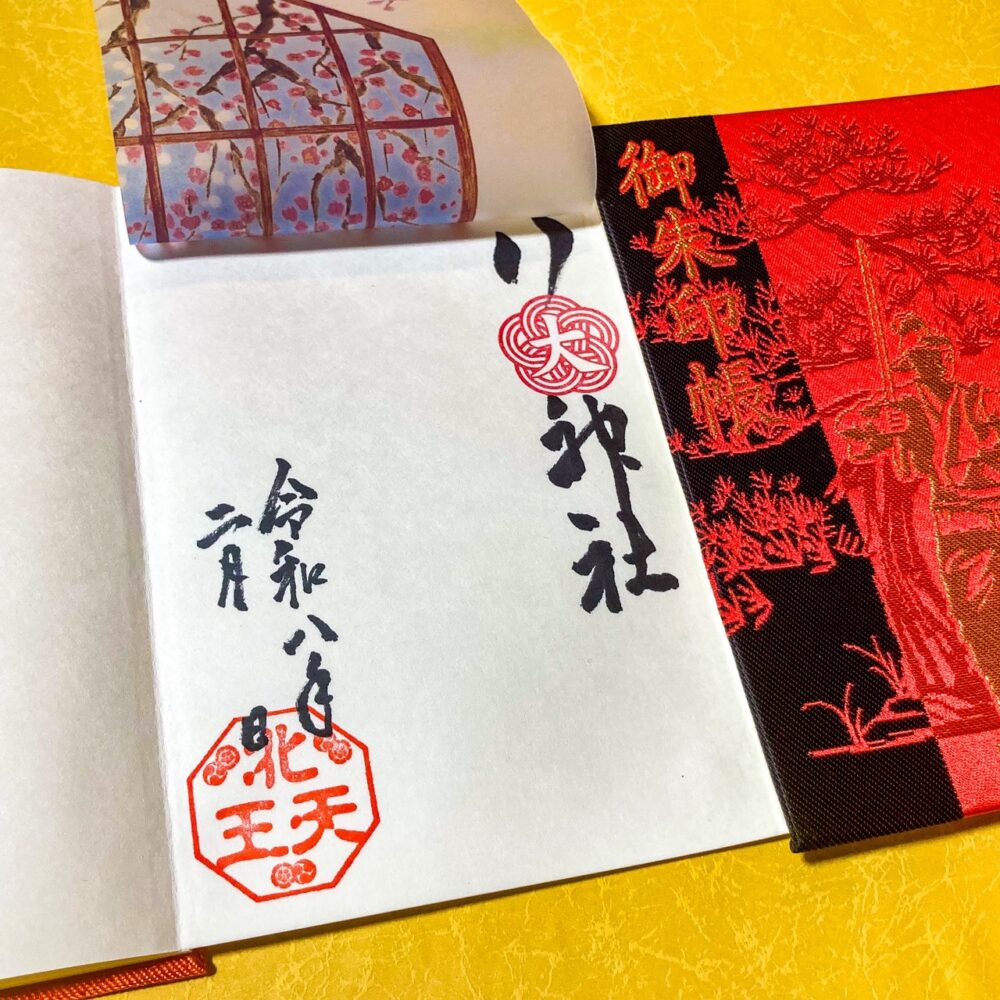 御朱印帳
八大神社
令和八年
二月 日
北天王